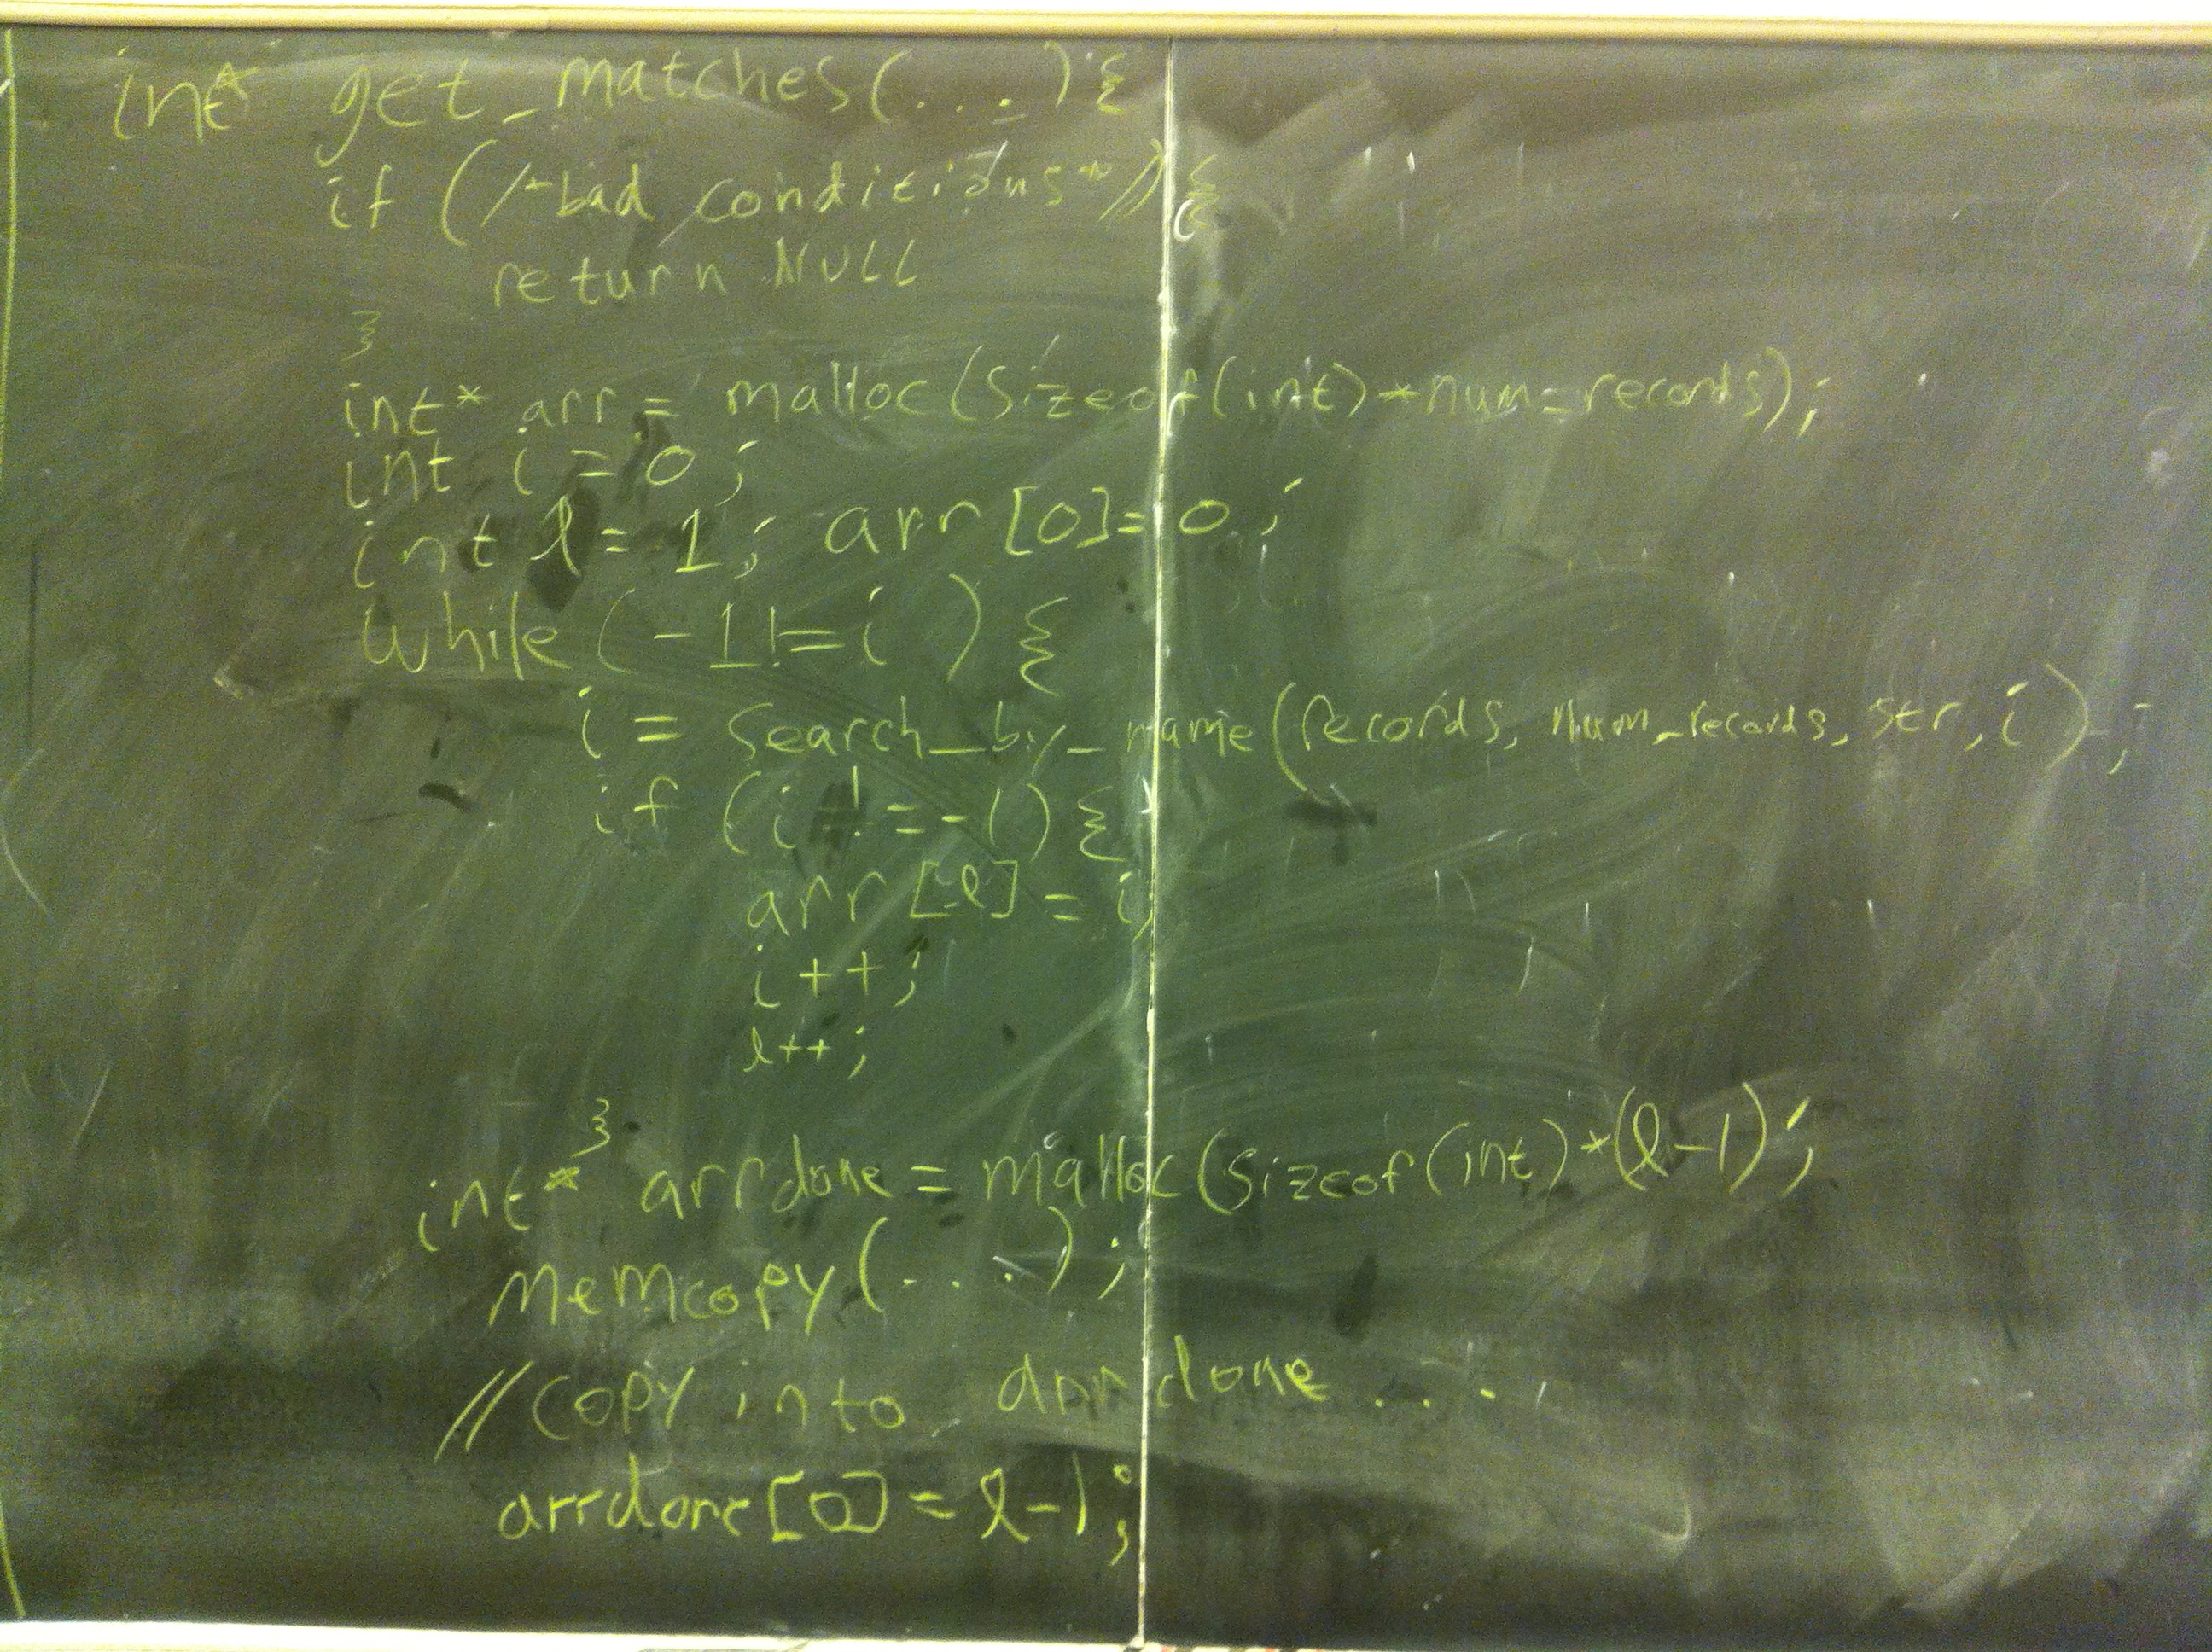 int* get_matches(...){
if (/*bad conditions*/){
return NULL
}
int* arr = malloc(sizeof(int)*num_records);
int i = 0;
int l = 1; arr[0]=0;
while (-1!=i) {
i = search_by_name(records, num_records, str, i);
if (i != -1) {
arr[l] = i;
i++;
l++;
}
int* arrdone = malloc(sizeof(int)*(l-1);
memcopy(...);
//copy into arrdone...
arrdone[0] = l-1;